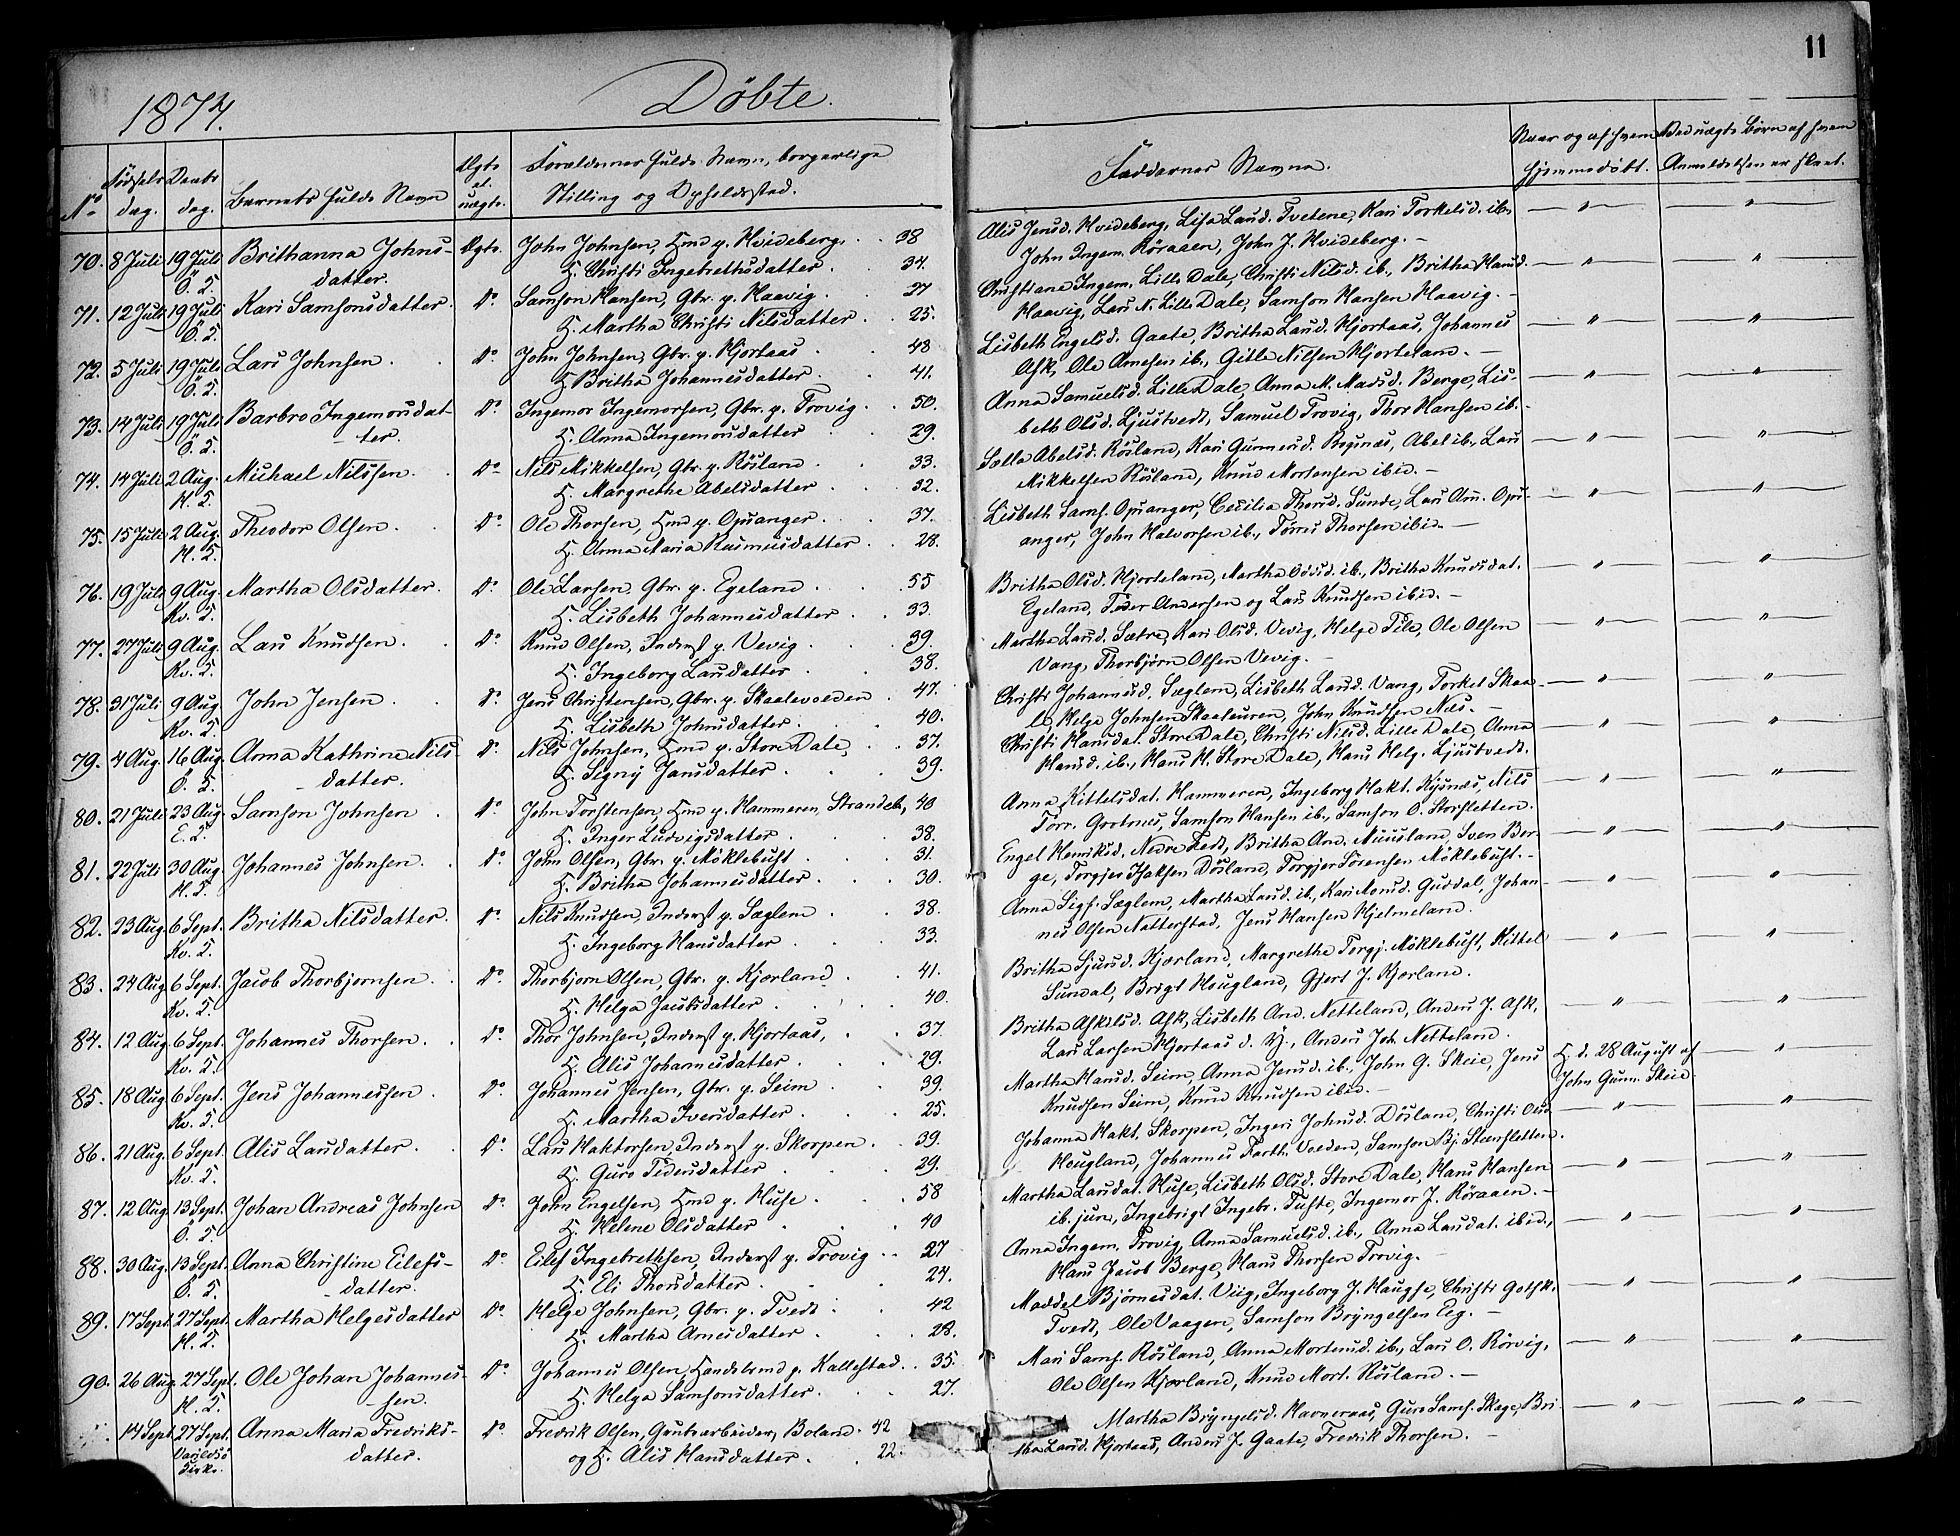 11
1874.
Döbte.
No
Födsels dag.
Daabs dag.
Barnets fulde Navn
Ægte el. uægte.
Forældrenes fulde Navn, borgerlige
Stilling og Opholdssted.
Faddernes Navne.
Naar og af hvem
hjemmedöbt.
Ved uægte Börn af hvem
Anmeldelsen er skeet.
70. 8 Juli 19 Juli Ö. S. Brithanna Johns-
datter. Ægte. John Johnsen, Hmd p. Hvideberg. 38
H. Christi Ingebrethsdatter. 34.
Alis Jensd. Hvideberg, Lisa Larsd. Tvetene, Kari Torkelsd. ib.,
John Ingem. Röraaen, John J. Hvideberg. —
71. 12 Juli 19 Juli Ö. S. Kari Samsonsdatter. Do Samson Hansen, Gbr. p. Haavig. 27
H. Martha Christi Nilsdatter. 25.
Christiane Ingem. Lille Dale, Christi Nilsd. ib., Britha Hansd.
Haavig, Lars N. Lille Dale, Samson Hansen Haavig. —
72. 5 Juli 19 Juli Ö. S. Lars Johnsen. Do John Johnsen, Gbr. p. Hjortaas 48
H. Britha Johannesdatter. 41.
Lisbeth Engelsd. Gaate, Britha Larsd. Hjortaas, Johannes
Ask, Ole Arnesen ib., Gitle Nilsen Hjorteland. —
73. 14 Juli 19 Juli Ö. S. Barbro Ingemorsdat-
ter. Do Ingemor Ingemorsen, Gbr. p. Trovig. 50.
H. Anna Ingemorsdatter 29.
Anna Samuelsd. Lille Dale, Anna M. Madsd. Berge, Lis-
beth Olsd. Ljustvedt, Samuel Trovig, Thor Hansen ib. —
74. 14 Juli 2 Aug. H. S. Michael Nilssen. Do Nils Mikkelsen, Gbr. p. Rösland. 33.
H. Margrethe Abelsdatter. 32.
Solla Abelsd. Rösland, Kari Gunnersd. Rognæs, Abel ib., Lars
Mikkelsen Rösland, Knud Mortensen ibid. —
75. 15 Juli 2 Aug. H. S. Theodor Olsen. Do Ole Thorsen, Hmd p. Opsanger. 37.
H. Anna Maria Rasmusdatter. 28.
Lisbeth Sams. Opsanger, Cecilia Thorsd. Sunde, Lars Am. Ops-
anger, John Halvorsen ib., Törres Thorsen ibid. —
76. 19 Juli 9 Aug. Kv. S. Martha Olsdatter. Do Ole Larsen, Gbr. p. Egeland. 55
H. Lisbeth Johannesdatter. 33
Britha Olsd. Hjorteland, Martha Oddsd. ib., Britha Knudsdat.
Egeland, Peder Andersen og Lars Knudsen ibid. —
77. 27 Juli 9 Aug. Kv. S. Lars Knudsen. Do Knud Olsen, Inderst p. Vevig. 39.
H. Ingeborg Larsdatter 38.
Martha Larsd. Sætre, Kari Olsd. Vevig, Helge File, Ole Olsen
Vang, Thorbjörn Olsen Vevig. —
78. 31 Juli 9 Aug Kv. S. John Jensen Do Jens Christensen, Gbr. p. Skaalevolden. 47.
H. Lisbeth Johnsdatter. 40.
Christi Johannesd. Sæglem, Lisbeth Larsd. Vang, Torkel Skaa-
le, Helge Johnsen Skaaleuren, John Knudsen Næs. —
79. 4 Aug. 16 Aug Ö. S. Anna Kathrine Nils-
datter. Do Nils Johnsen, Hmd p. Store Dale, 37.
H. Signy Jansdatter. 39.
Christi Hansdat. Store Dale, Christi Nilsd. Lille Dale, Anna
Hansd. ib., Hans H. Store Dale, Hans Helg. Ljustvedt.
80. 21 Juli 23 Aug. E. S. Samson Johnsen Do John Torstensen, Hmd p. Hammeren, Strandeb., 40
H. Inger Ludvigsdatter. 38.
Anna Kittelsdat. Hammeren, Ingeborg Hakt. Kysnæs, Nils
Torr. Grotnæs, Samson Hansen ib., Samson O. Storsletten.
81. 22 Juli 30 Aug. H. S. Johannes Johnsen. Do John Olsen, Gbr. p. Möklebust. 31.
H. Britha Johannesdatter. 30.
Engel Henriksd. Nedre Fedt, Britha And. Muusland, Sven Ber-
ge, Torgjer Isaksen Dösland, Torgjer Sörensen Möklebust. —
82. 23 Aug 6 Sept. Kv. S. Britha Nilsdatter. Do Nils Knudsen, Inderst p. Sæglem. 38.
H. Ingeborg Hansdatter. 33.
Anna Sigf. Sæglem, Martha Larsd. ib., Kari Monsd. Guddal, Johan-
nes Olsen Natterstad, Jens Hansen Hjelmeland.
83. 24 Aug 6 Sept. Kv. S. Jacob Thorbjornsen. Do Thorbjorn Olsen, Gbr. p. Kjærland 41.
H. Helga Jacobsdatter. 40.
Britha Sjursd. Kjærland, Margrethe Torgj. Möklebust, Kittel
Sundal, Brigt Hougland, Gjert J. Kjærland.
84. 12 Aug 6 Sept. Kv. S. Johannes Thorsen. Do Thor Johnsen, Inderst p. Hjortaas, 37
H. Alis Johannesdatter. 29.
Britha Askilsd. Ask, Lisbeth And. Netteland, Anders J. Ask,
Lars Larsen Hjortaas d. Y., Anders Joh. Netteland.
85. 18 Aug 6 Sept. Kv. S. Jens Johannessen. Do Johannes Jensen, Gbr. p. Seim. 39.
H. Martha Iversdatter. 25.
Martha Hansd. Seim, Anna Jensd. ib., John G. Skeie, Jens
Knudsen Seim, Knud Knudsen ibid. —
H. d. 28 August af
John Gunn. Skeie
86. 21 Aug. 6 Sept. Kv. S. Alis Larsdatter. Do Lars Haktorsen, Inderst p. Skorpen. 39.
H. Guro Pedersdatter 29.
Johanna Hakt. Skorpen, Ingeri Johnsd. Dösland, Christi Olsd.
Hougland, Johannes Parth. Volden, Samson Bj. Steensletten.
87. 12 Aug 13 Sept. Ö. S. Johan Andreas Johnsen Do John Engelsen, Hmd p. Huse. 58
H. Helene Olsdatter 40
Martha Larsdat. Huse, Lisbeth Olsd. Store Dale, Hans Hansen
ib. jun., Ingebrigt Ingebr. Tufte, Ingemor J. Röraaen. —
88. 30 Aug. 13 Sept. Ö. S. Anna Christine Eilefs-
datter. Do Eilef Ingebrethsen, Inderst p. Trovig. 27
H. Eli Thorsdatter. 24.
Anna Ingem. Trovig, Anna Samuelsd. ib., Anna Larsdat. ibid.,
Hans Jacob Berge, Hans Thorsen Trovig. —
89. 17 Sept. 27 Sept. H. S. Martha Helgesdatter Do Helge Johnsen, Gbr. p. Tvedt. 42
H. Martha Arnesdatter. 28.
Maddel Björnesdat. Viig, Ingeborg J. Haugse, Christi Gotsk.
Tvedt, Ole Vaagen, Samson Bryngelsen Eeg. —
90. 26 Aug. 27 Sept. H. S. Ole Johan Johannes-
sen. Do Johannes Olsen, Handelsmd p. Kallestad. 35.
H. Helga Samsonsdatter. 27.
Mari Sams. Rösland, Anna Mortensd. ib., Lars O. Rörvig,
Ole Olsen Kjærland, Knud Mort. Rösland. —
14 Sept. 27 Sept. Varaldsö Kirke. Anna Maria Fredriks-
datter. Do Fredrik Olsen, Grubearbeider, Boland. 42
og H. Alis Hansdatter. 22.
Martha Bryngelsd. Havneraas, Guro Sams. Skege, Bri-
tha Larsd. Hjortaas, Anders J. Gaate, Fredrik Thorsen. —